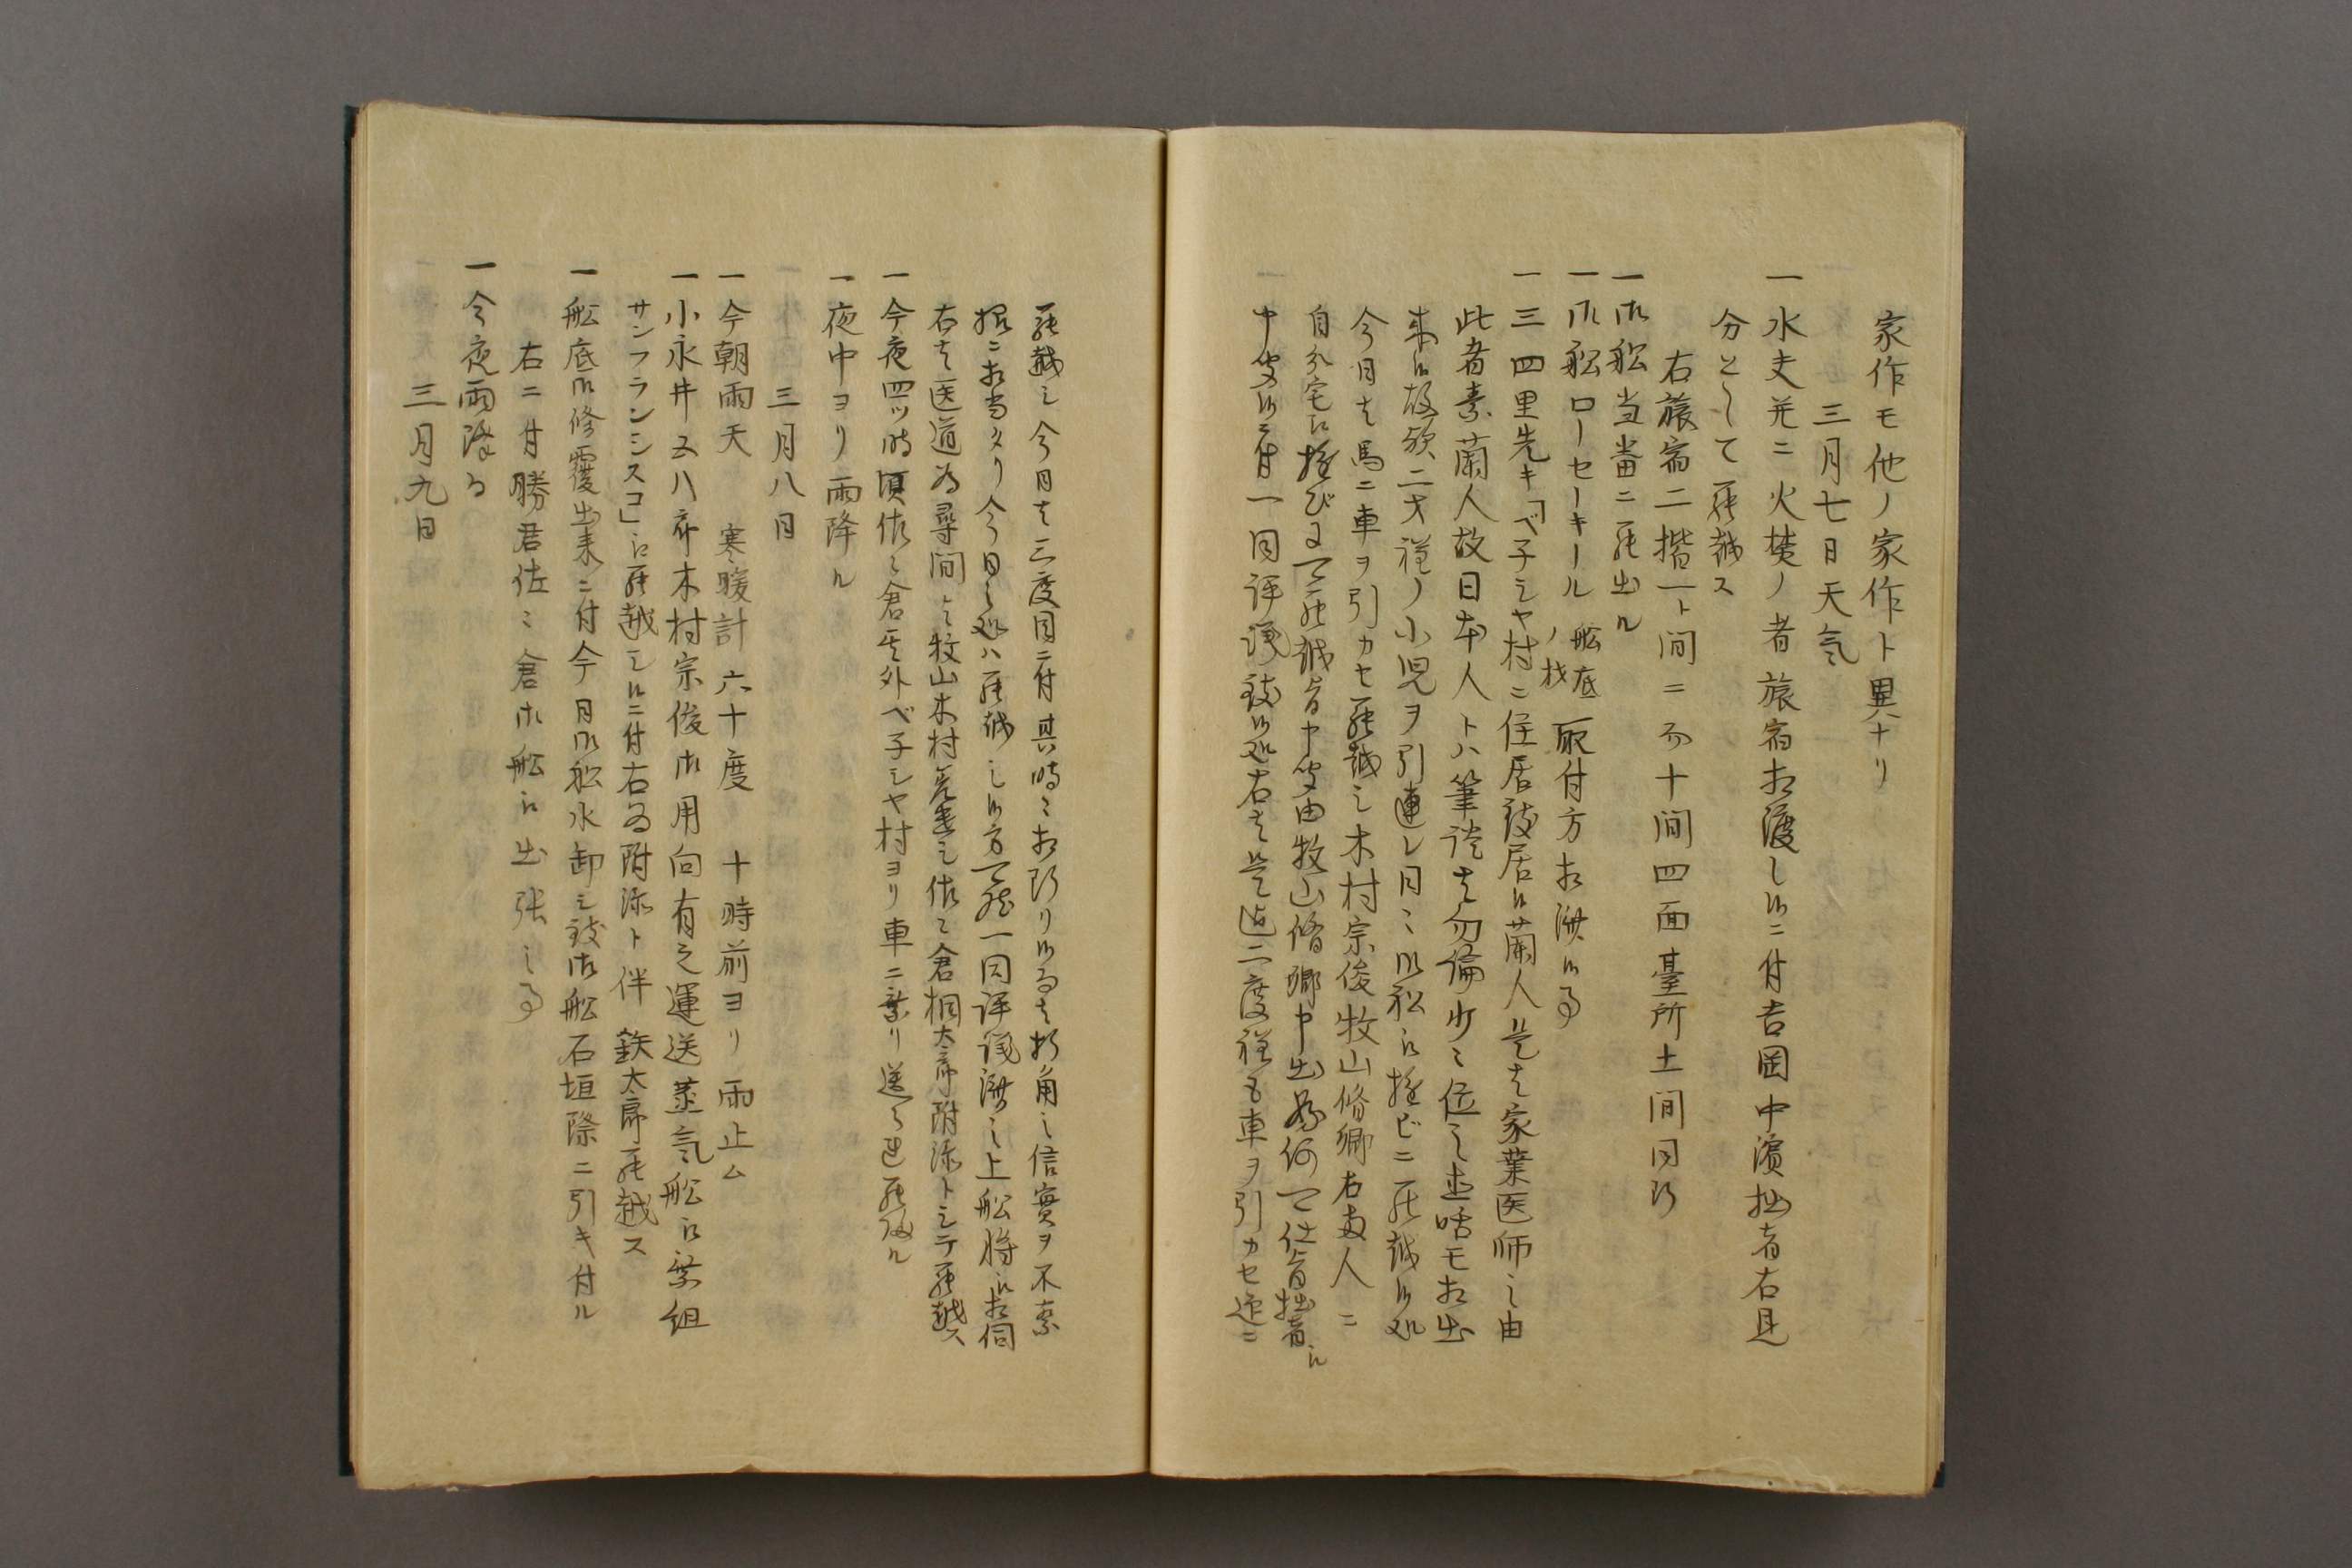 家作モ他ノ家作ト異ナリ
三月七日天気
一水夫并ニ火焚ノ者旅宿相渡し候ニ付吉岡中濱拙者右見
分として罷越ス
右旅宿二揩一ト間ニ而十間四面臺所土間同断
一御船当番ニ罷出ル
一御船ローセーキール船底ノ材取付方相済候事
一三四里先キ「ベ子シヤ村ニ住居致居候蘭人是者家業医師之由
此者素蘭人故日本人トハ筆談者勿論少々位之直咄モ相出
来候故頻二才程ノ小児ヲ引連レ日々御船江遊ビニ罷越候処
今日者馬ニ車ヲ引カセ罷越シ木村宗俊牧山修卿右両人ニ
自分宅江遊びニ可罷越旨申聞由牧山修卿申出為何可仕旨拙者江
申聞候ニ付一同評議致候処右者是迄二度程も車ヲ引カセ迎ニ
罷越シ今日者三度目ニ付其時々相断リ候而者折角之信實ヲ不素
損ニ相当タリ今日之処ハ罷越し候方可然一同評議済之上船将江相伺
右者医道為尋問と牧山木村差遣シ佐々倉桐太郎附添トシテ罷越ス
一今夜四ツ時頃佐々倉其外ベ子シヤ村ヨリ車ニ乗リ送られ罷帰ル
一夜中ヨリ雨降ル
三月八日
一今朝雨天 寒暖計六十度 十時前ヨリ雨止ム
一小永井五八郎木村宗俊御用向有之運送蒸気船江乗組
サンフランシスコ」江罷越シ候ニ付右為附添ト伴鉄太郎罷越ス
一船底御修覆出来ニ付今日御船水卸シ致御船石垣際ニ引キ付ル
右ニ付勝君佐々倉御船江出張之事
一今夜雨降る
三月九日